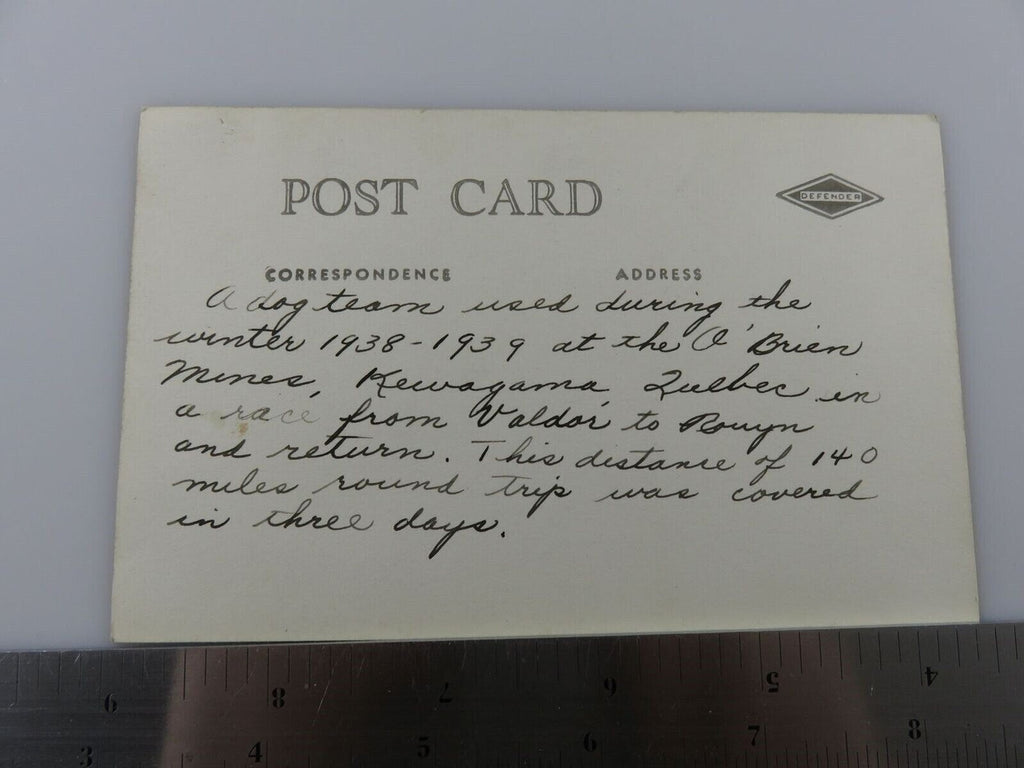 POST CARD
DEFENDER
CORRESPONDENCE ADDRESS
A dog team used during the
winter 1938-1939 at the O'Brien
Mines, Kewagama, Quebec in
a race from Valdor to Rouyn
and return. This distance of 140
miles round trip was covered
in three days.
9 8 7 6 5 4
3 4 5 6 7 8